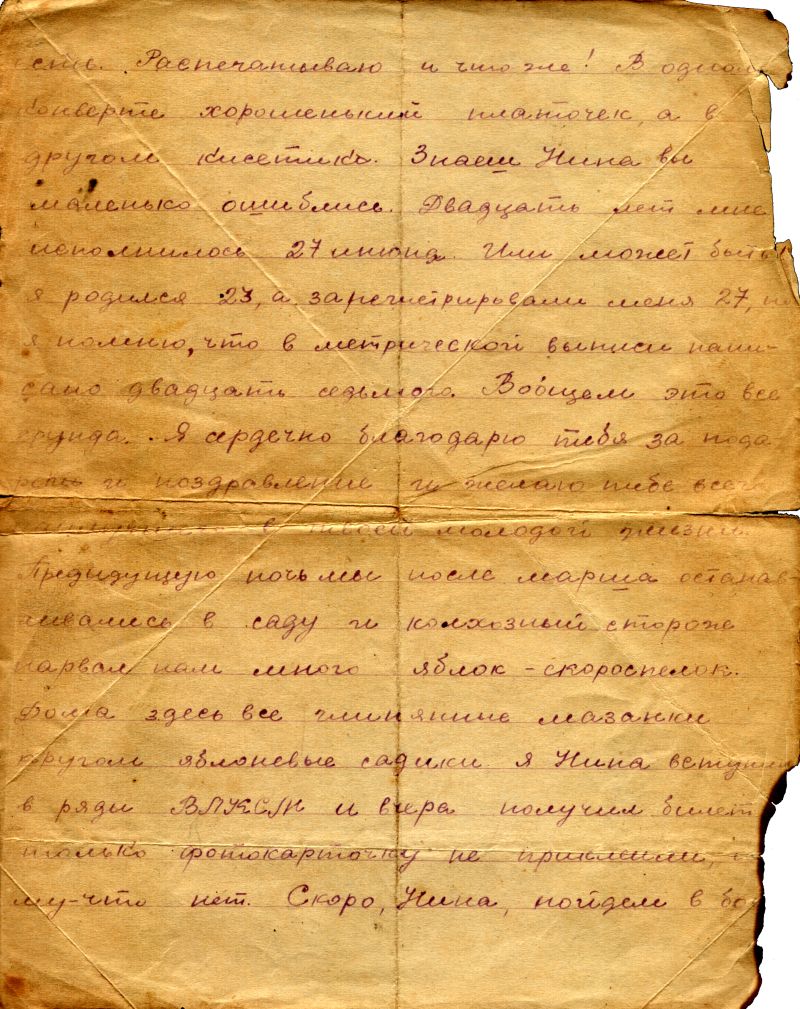 есть. Распечатываю и что же! В одном
конверте хорошенький платочек, а в
другом кисетик. Знаеш Нина вы
маленько ошиблись. Двадцать лет мне
исполнилось 27 июня. Или может быть
я родился 23, а зарегистрировали меня 27, но
я помню, что в метрической выписи напи-
сано двадцать седьмого. Вообщем это все
ерунда. Я сердечно благодарю тебя за пода-
рки и поздравление и желаю тебе всего
в твоей молодой жизни.
Предидущую ночь мы после марша останав-
ливались в саду и колхозный сторож
нарвал нам много яблок - скороспелок.
Дома здесь все глиняние мазанки
кругом яблоневые садики я Нина вступил
в ряды ВЛКСМ и вчера получил билет
только фотокарточку не приклеили,
му-что нет. Скоро, Нина, пойдем в бо